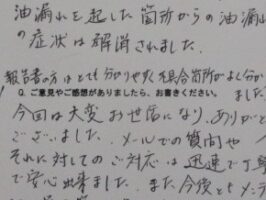 油漏れを起した箇所からの油漏れ
の症状は解消されました。
報告書の方はとても分かりやすく不具合箇所がよく分か
りました。
Q. ご意見やご感想がありましたら、お書きください。
今回は大変お世話になり、ありがと
ございました。メールでの質問や
それに対してのご対応は迅速で丁寧
で安心出来ました。また今後ともメンテ